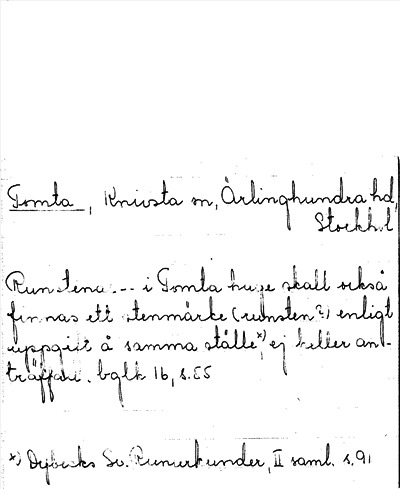 Tomta, Knivsta sn, Ärlinghundra hd,
Stockh. l
Runstenar... i Tomta hage skall också
finnas ett stenmärke (runsten?) enligt
uppgift å samma ställe,*) ej heller an-
träffad. bglk 16, s. 55
*) Dybecks Sv. Runurkunder, II saml. s. 91